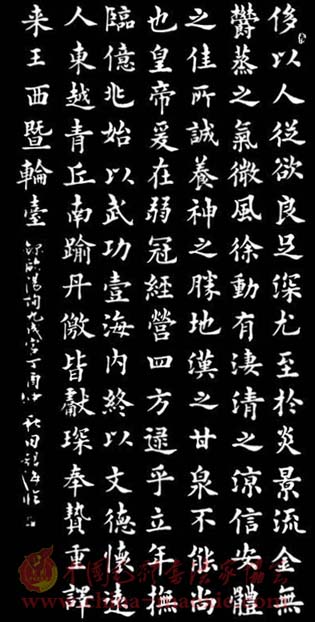 侈以人從欲良足深尤至於炎景流金無
欝蒸之氣微風徐動有淒清之涼信安體
之佳所誠養神之勝地漢之甘泉不能尚
也皇帝爰在弱冠經營四方逯乎立年撫
臨億兆始以武功壹海内終以文德懷遠
人東越青丘南踰丹徼皆獻琛奉贄重譯
来王西暨輪臺
歐陽詢九成宮丁酉仲秋田